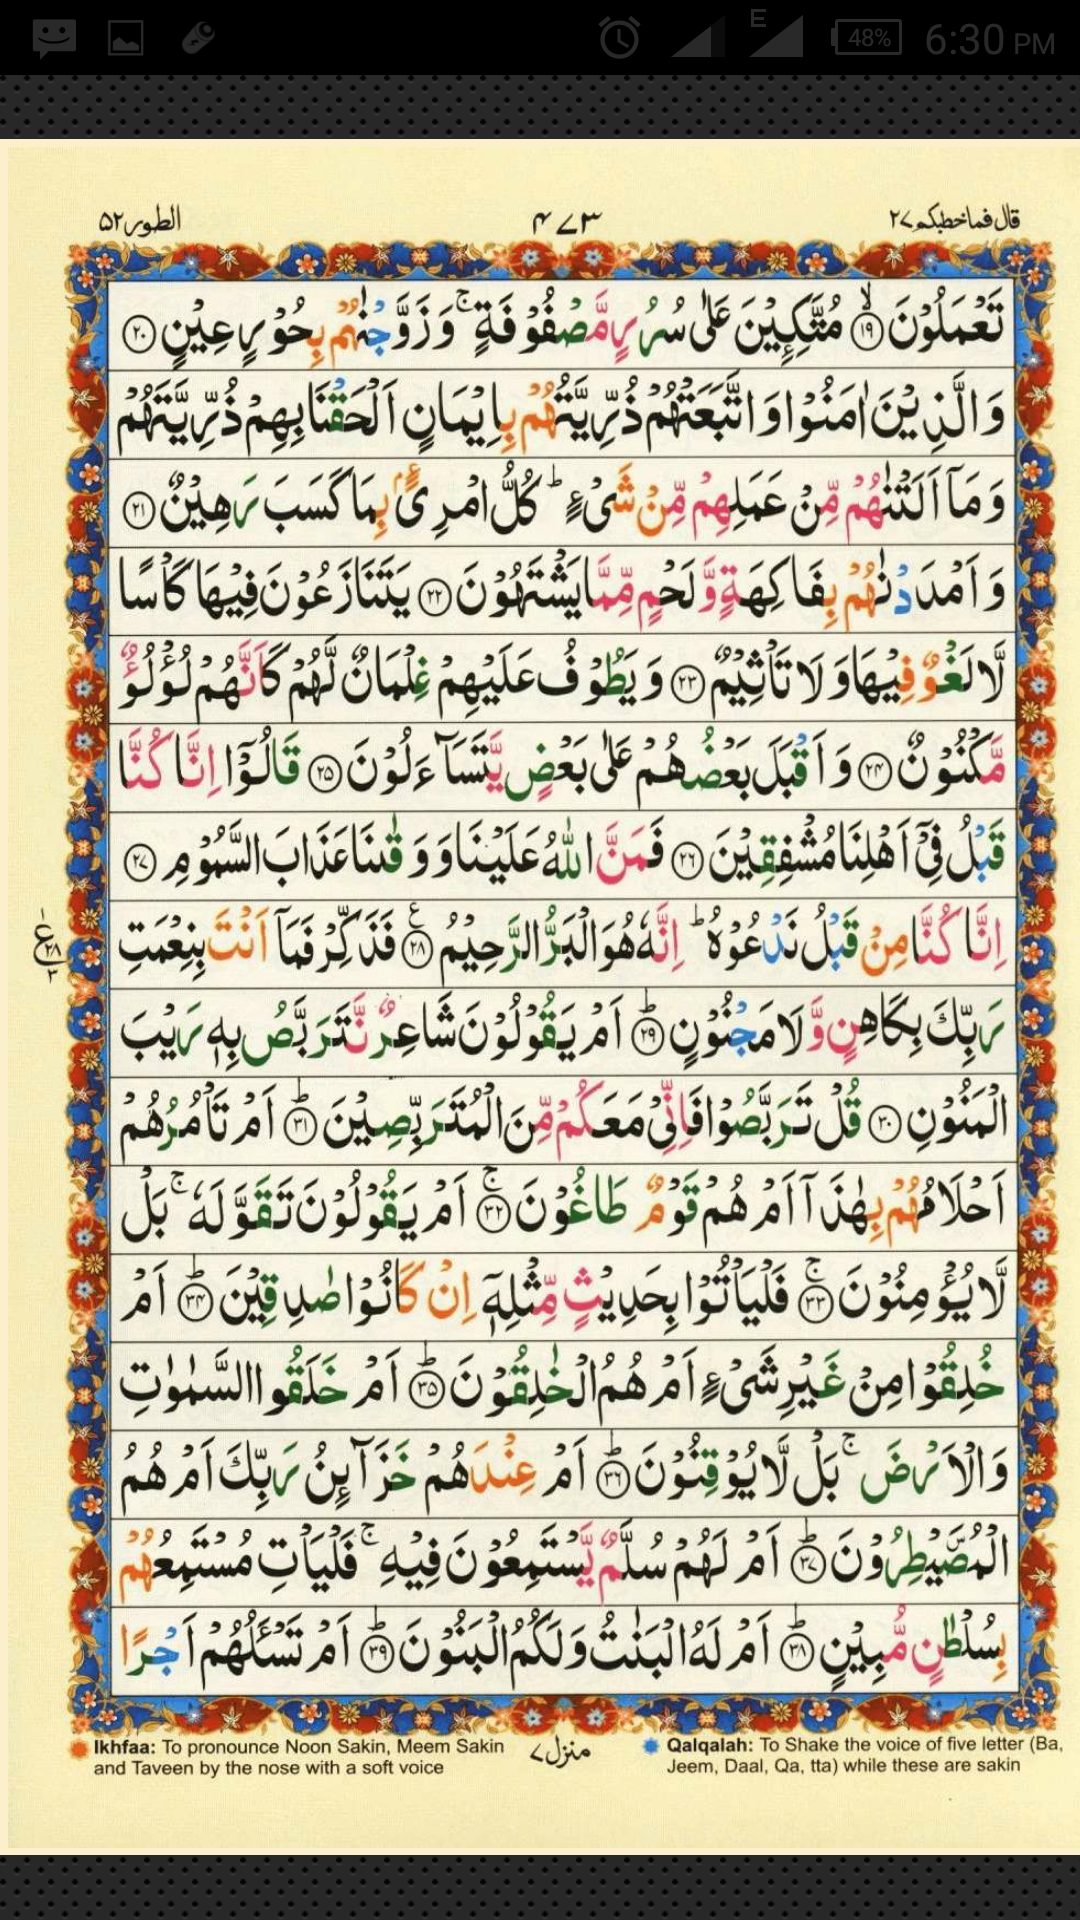 48% 6:30 PM
E
الطور ۵۲ ۴۷۳ قال فماخطبکم ۲۷
تَعْمَلُوْنَ ۙ﴿۱۹﴾ مُتَّكِـِٕيْنَ عَلٰى سُرُرٍ مَّصْفُوْفَةٍ ۚ وَ زَوَّجْنٰهُمْ بِحُوْرٍ عِيْنٍ ﴿۲۰﴾
وَ الَّذِيْنَ اٰمَنُوْا وَ اتَّبَعَتْهُمْ ذُرِّيَّتُهُمْ بِاِيْمَانٍ اَلْحَقْنَا بِهِمْ ذُرِّيَّتَهُمْ
وَ مَاۤ اَلَتْنٰهُمْ مِّنْ عَمَلِهِمْ مِّنْ شَیْءٍ ؕ كُلُّ امْرِیٴٍۭ بِمَا كَسَبَ رَهِيْنٌ ﴿۲۱﴾
وَ اَمْدَدْنٰهُمْ بِفَاكِهَةٍ وَّ لَحْمٍ مِّمَّا يَشْتَهُوْنَ ﴿۲۲﴾ يَتَنَازَعُوْنَ فِيْهَا كَاْسًا
لَّا لَغْوٌ فِيْهَا وَ لَا تَاْثِيْمٌ ﴿۲۳﴾ وَ يَطُوْفُ عَلَيْهِمْ غِلْمَانٌ لَّهُمْ كَاَنَّهُمْ لُؤْلُؤٌ
مَّكْنُوْنٌ ﴿۲۴﴾ وَ اَقْبَلَ بَعْضُهُمْ عَلٰى بَعْضٍ يَّتَسَآءَلُوْنَ ﴿۲۵﴾ قَالُوْۤا اِنَّا كُنَّا
قَبْلُ فِیْۤ اَهْلِنَا مُشْفِقِيْنَ ﴿۲۶﴾ فَمَنَّ اللّٰهُ عَلَيْنَا وَ وَقٰىنَا عَذَابَ السَّمُوْمِ ﴿۲۷﴾
اِنَّا كُنَّا مِنْ قَبْلُ نَدْعُوْهُ ؕ اِنَّهٗ هُوَ الْبَرُّ الرَّحِيْمُ ﴿۲۸﴾ ع فَذَكِّرْ فَمَاۤ اَنْتَ بِنِعْمَتِ
ع ۱ ۲۸ ۳
رَبِّكَ بِكَاهِنٍ وَّ لَا مَجْنُوْنٍ ؕ﴿۲۹﴾ اَمْ يَقُوْلُوْنَ شَاعِرٌ نَّتَرَبَّصُ بِهٖ رَيْبَ
الْمَنُوْنِ ﴿۳۰﴾ قُلْ تَرَبَّصُوْا فَاِنِّیْ مَعَكُمْ مِّنَ الْمُتَرَبِّصِيْنَ ؕ﴿۳۱﴾ اَمْ تَاْمُرُهُمْ
اَحْلَامُهُمْ بِهٰذَاۤ اَمْ هُمْ قَوْمٌ طَاغُوْنَ ۚ﴿۳۲﴾ اَمْ يَقُوْلُوْنَ تَقَوَّلَهٗ ۚ بَلْ
لَّا يُؤْمِنُوْنَ ۚ﴿۳۳﴾ فَلْيَاْتُوْا بِحَدِيْثٍ مِّثْلِهٖۤ اِنْ كَانُوْا صٰدِقِيْنَ ؕ﴿۳۴﴾ اَمْ
خُلِقُوْا مِنْ غَيْرِ شَیْءٍ اَمْ هُمُ الْخٰلِقُوْنَ ؕ﴿۳۵﴾ اَمْ خَلَقُوا السَّمٰوٰتِ
وَ الْاَرْضَ ۚ بَلْ لَّا يُوْقِنُوْنَ ؕ﴿۳۶﴾ اَمْ عِنْدَهُمْ خَزَآىِٕنُ رَبِّكَ اَمْ هُمُ
الْمُصَۜيْطِرُوْنَ ؕ﴿۳۷﴾ اَمْ لَهُمْ سُلَّمٌ يَّسْتَمِعُوْنَ فِيْهِ ۚ فَلْيَاْتِ مُسْتَمِعُهُمْ
بِسُلْطٰنٍ مُّبِيْنٍ ؕ﴿۳۸﴾ اَمْ لَهُ الْبَنٰتُ وَ لَكُمُ الْبَنُوْنَ ؕ﴿۳۹﴾ اَمْ تَسْـَٔلُهُمْ اَجْرًا
Ikhfaa: To pronounce Noon Sakin, Meem Sakin
and Taveen by the nose with a soft voice
منزل ۷
Qalqalah: To Shake the voice of five letter (Ba,
Jeem, Daal, Qa, tta) while these are sakin